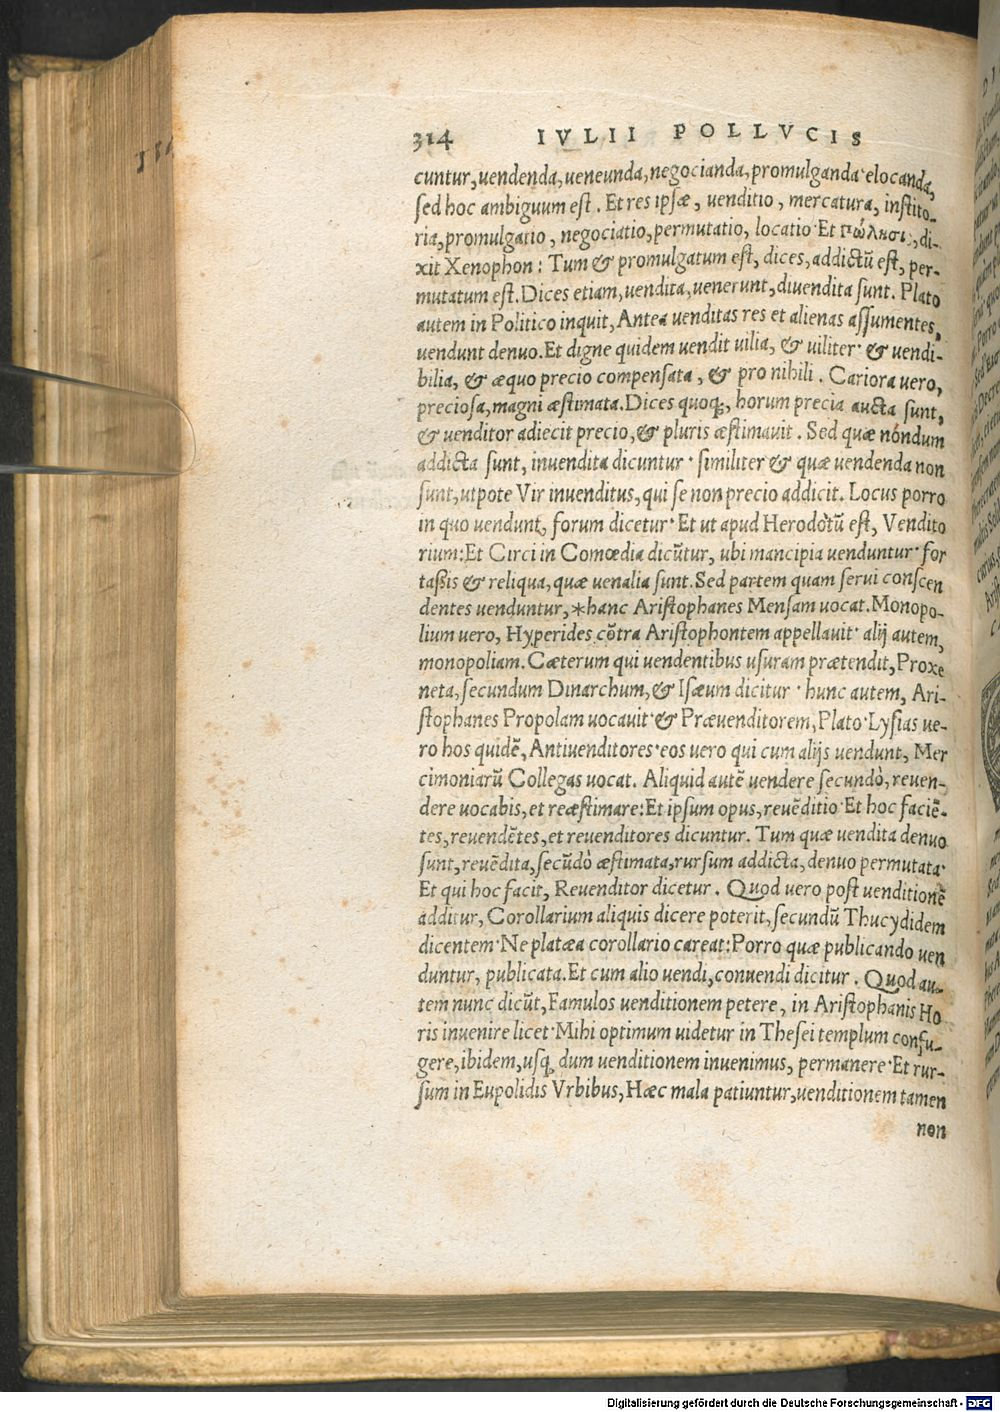 314 IVLII POLLVCIS
cuntur,uendenda,ueneunda,negocianda,promulganda·elocanda,
sed hoc ambiguum est. Et res ipsæ, uenditio, mercatura, instito-
ria,promulgatio, negociatio,permutatio, locatio·Et πώλησις,di-
xit Xenophon: Tum & promulgatum est, dices, addictū est, per-
mutatum est. Dices etiam,uendita,uenerunt,diuendita sunt. Plato
autem in Politico inquit,Antea uenditas res et alienas assumentes,
uendunt denuo.Et digne quidem uendit uilia, & uiliter· & uendi-
bilia, & æquo precio compensata, & pro nihili. Cariora uero,
preciosa,magni æstimata. Dices quoq;, horum precia aucta sunt,
& uenditor adiecit precio,& pluris æstimauit. Sed quæ nondum
addicta sunt, inuendita dicuntur· similiter & quæ uendenda non
sunt,utpote Vir inuenditus, qui se non precio addicit. Locus porro
in quo uendunt, forum dicetur· Et ut apud Herodotū est, Vendito
rium:Et Circi in Comœdia dicūtur, ubi mancipia uenduntur· for
tassis & reliqua, quæ uenalia sunt. Sed partem quam serui conscen
dentes uenduntur, *hanc Aristophanes Mensam uocat. Monopo-
lium uero, Hyperides cōtra Aristophontem appellauit· alij autem,
monopoliam. Cæterum qui uendentibus usuram prætendit, Proxe
neta,secundum Dinarchum,& Isæum dicitur· hunc autem, Ari-
stophanes Propolam uocauit·& Præuenditorem,Plato·Lysias ue-
ro hos quidē, Antiuenditores·eos uero qui cum alijs uendunt, Mer
cimoniarū Collegas uocat. Aliquid autē uendere secundò, reuen-
dere uocabis,et reæstimare:Et ipsum opus,reuēditio·Et hoc faciē-
tes,reuendētes,et reuenditores dicuntur. Tum quæ uendita denuo
sunt,reuēdita,secūdò æstimata,rursum addicta,denuo permutata·
Et qui hoc facit, Reuenditor dicetur. Quod uero post uenditionē
additur, Corollarium aliquis dicere poterit, secundū Thucydidem
dicentem·Ne platæa corollario careat:Porro quæ publicando uen
duntur, publicata. Et cum alio uendi,conuendi dicitur. Quod au-
tem nunc dicūt, Famulos uenditionem petere, in Aristophanis Ho
ris inuenire licet·Mihi optimum uidetur in Thesei templum confu-
gere,ibidem,usq; dum uenditionem inuenimus, permanere·Et rur-
sum in Eupolidis Vrbibus, Hæc mala patiuntur,uenditionem tamen
non
Digitalisierung gefördert durch die Deutsche Forschungsgemeinschaft - DFG